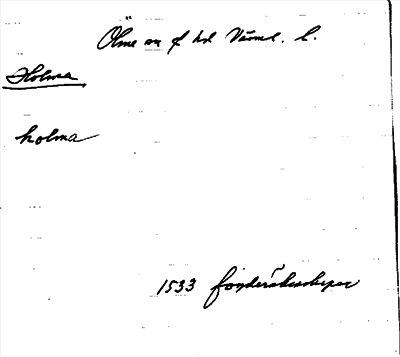 Ölme sn f hd Värml. l.
Holma
holma
1533